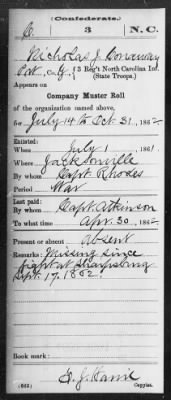 (Confederate.)
C 3 N.C.
Nicholas J. Conaway
Pvt, Co. G, 3 Reg't North Carolina Inf.
(State Troops.)
Appears on
Company Muster Roll
of the organization named above,
for July 14 to Oct 31, 1862
Enlisted:
When July 1, 1861
Where Jacksonville
By whom Capt. Rhodes
Period War
Last paid:
By whom Capt. Atkinson
To what time Apr. 30, 1862
Present or absent Absent
Remarks: Missing since
fight at Sharpsburg
Sept. 17, 1862.
Book mark:
(642)
Copyist.